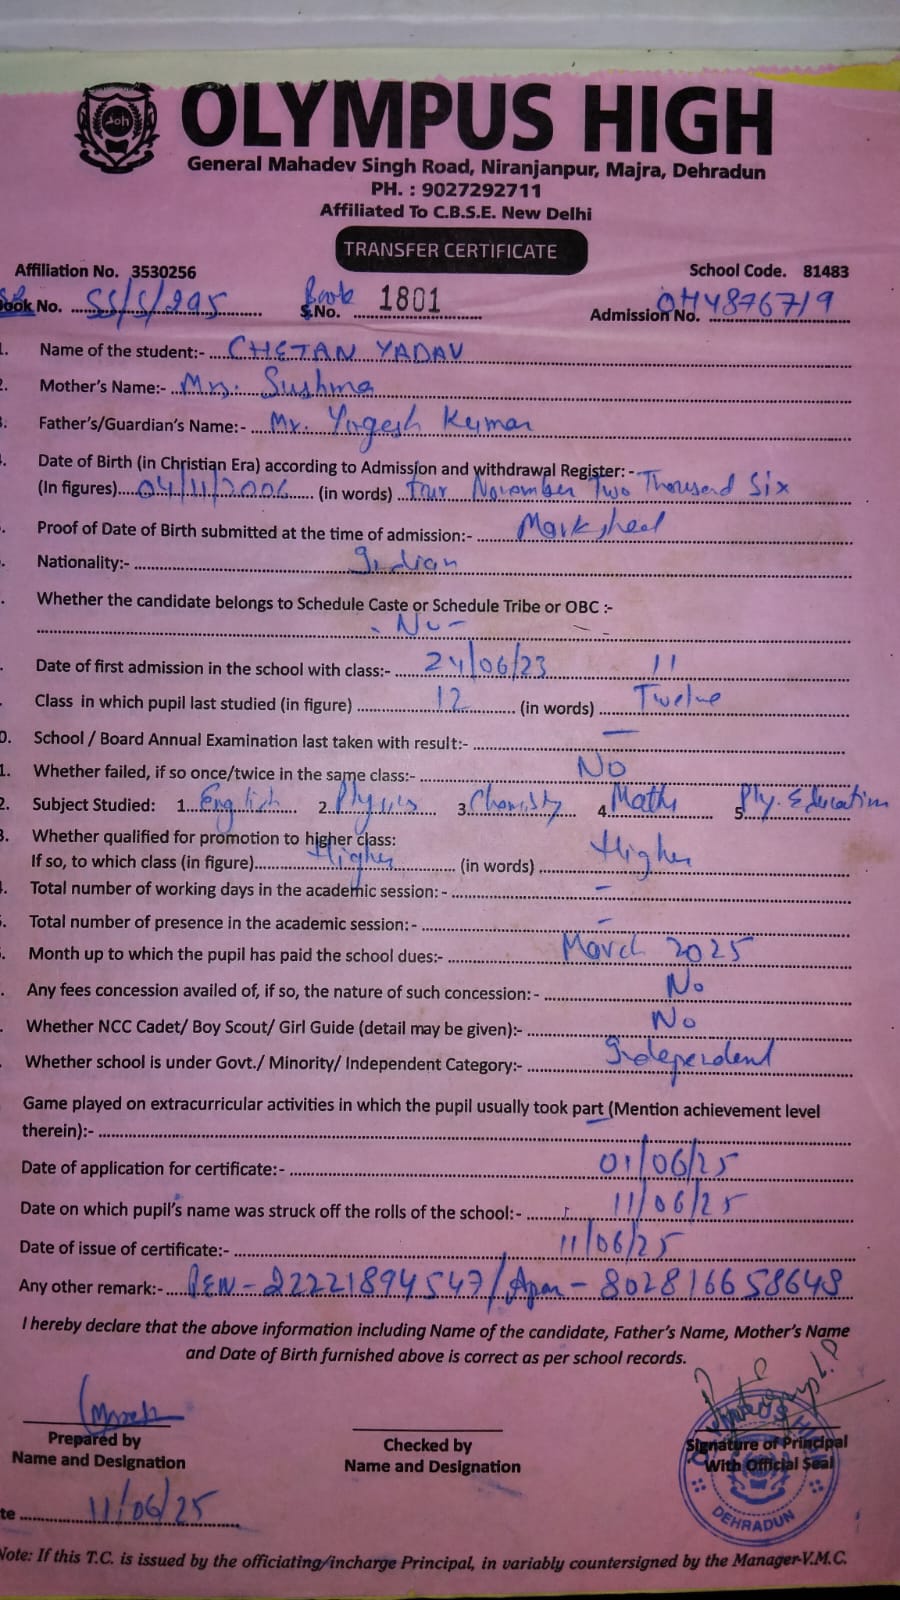 Joh
OLYMPUS HIGH
General Mahadev Singh Road, Niranjanpur, Majra, Dehradun
PH. : 9027292711
Affiliated To C.B.S.E. New Delhi
TRANSFER CERTIFICATE
Affiliation No. 3530256 School Code. 81483
Book No. SS/S/295 Book S.No. 1801 Admission No. OH48767/9
1. Name of the student:- CHETAN YADAV
2. Mother's Name:- Mrs. Sushma
3. Father's/Guardian's Name:- Mr. Yogesh Kumar
4. Date of Birth (in Christian Era) according to Admission and withdrawal Register: -
(In figures) 04/11/2006 (in words) Four November Two Thousand Six
Proof of Date of Birth submitted at the time of admission:- Marksheet
Nationality:- Indian
Whether the candidate belongs to Schedule Caste or Schedule Tribe or OBC :-
- No -
Date of first admission in the school with class:- 24/06/23 11
Class in which pupil last studied (in figure) 12 (in words) Twelve
0. School / Board Annual Examination last taken with result:- —
1. Whether failed, if so once/twice in the same class:- No
2. Subject Studied: 1. English 2. Physics 3. Chemistry 4. Maths 5. Phy. Education
3. Whether qualified for promotion to higher class:
If so, to which class (in figure) Higher (in words) Higher
4. Total number of working days in the academic session: - –
5. Total number of presence in the academic session: - –
Month up to which the pupil has paid the school dues:- March 2025
Any fees concession availed of, if so, the nature of such concession: - No
Whether NCC Cadet/ Boy Scout/ Girl Guide (detail may be given):- No
Whether school is under Govt./ Minority/ Independent Category:- Independent
Game played on extracurricular activities in which the pupil usually took part (Mention achievement level
therein):-
Date of application for certificate:- 01/06/25
Date on which pupil's name was struck off the rolls of the school:- 11/06/25
Date of issue of certificate:- 11/06/25
Any other remark:- PEN - 22221894547/Apar - 802816658648
I hereby declare that the above information including Name of the candidate, Father's Name, Mother's Name
and Date of Birth furnished above is correct as per school records.
Prepared by
Name and Designation
Checked by
Name and Designation
Signature of Principal
With Official Seal
DEHRADUN
te 11/06/25
Note: If this T.C. is issued by the officiating/incharge Principal, in variably countersigned by the Manager-V.M.C.